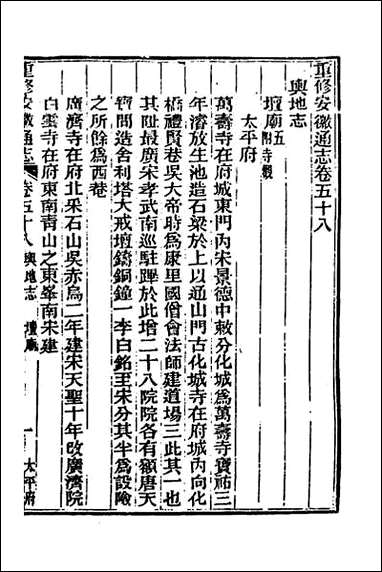 重修安徽通志卷五十八
輿地志
壇廟五附寺觀
太平府
萬壽寺在府城東門內宋景德中敕分化城爲萬壽寺寶祐三
年濬放生池造石梁於上以通山門古化城寺在府城內向化
橋禮賢巷吳大帝時爲康里國僧會法師建道場三此其一也
其阯最廣宋孝武南巡駐蹕於此增二十八院院各有額唐天
寶間造舍利塔大戒壇鑄銅鐘一李白銘至宋分其半爲設險
之所餘爲西巷
廣濟寺在府北采石山吳赤烏二年建宋天聖十年改廣濟院
白雲寺在府東南靑山之東峯南宋建
重修安徽通志 卷五十八 輿地志 壇廟 一 太平府